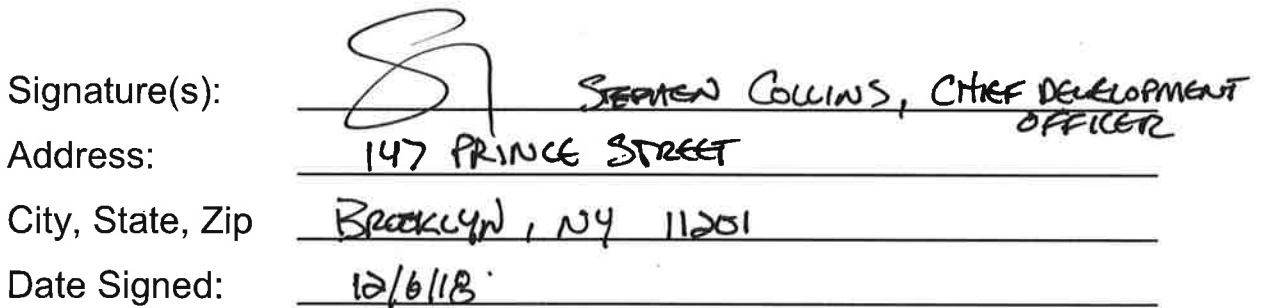 Signature(s): STEPHEN COLLINS, CHIEF DEVELOPMENT
OFFICER
Address: 147 PRINCE STREET
City, State, Zip BROOKLYN, NY 11201
Date Signed: 12/6/18